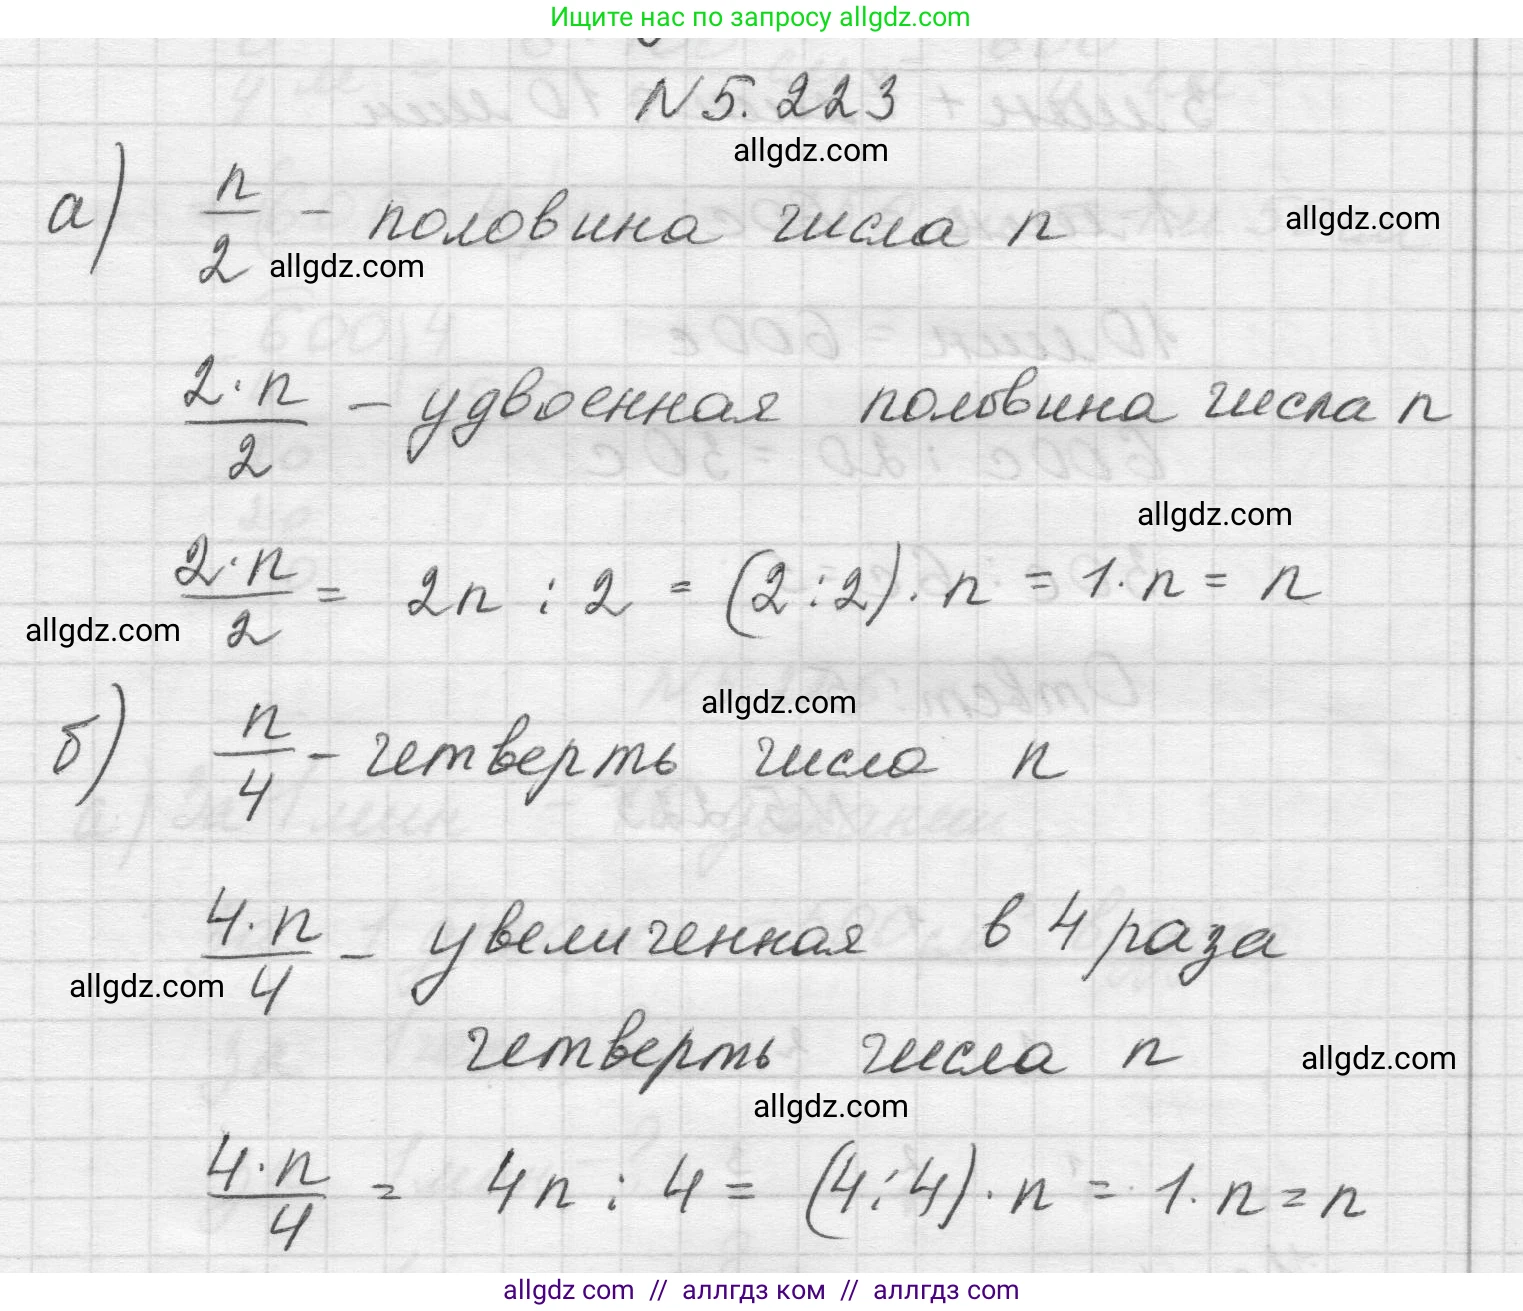 Ищите нас по запросу allgdz.com
N 5.223
allgdz.com
а) n/2 - половина числа n
allgdz.com
allgdz.com
2·n/2 - удвоенная половина числа n
allgdz.com
2·n/2 = 2n : 2 = (2:2)·n = 1·n = n
allgdz.com
allgdz.com
б) n/4 - четверть числа n
4·n/4 - увеличенная в 4 раза
allgdz.com
четверть числа n
allgdz.com
allgdz.com
4·n/4 = 4n : 4 = (4:4)·n = 1·n = n
allgdz com // аллгдз ком // аллгдз com